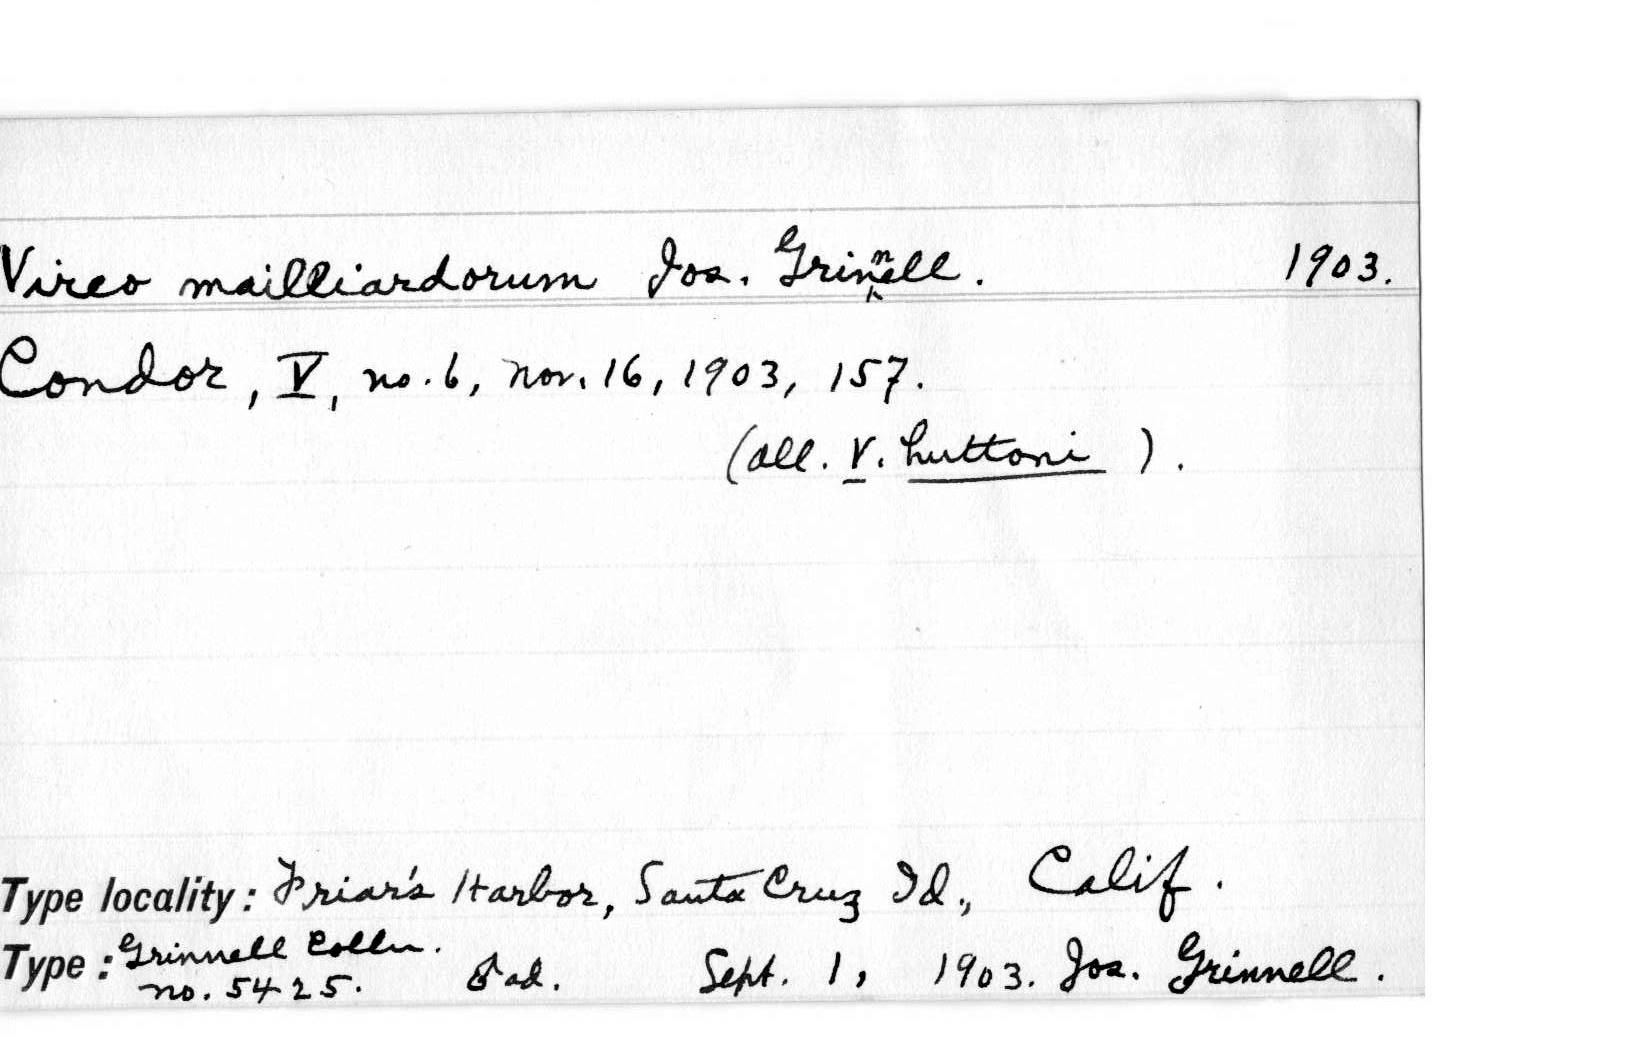 Vireo mailliardorum Jos. Grinnell. 1903.
Condor, V, no. 6, Nov. 16, 1903, 157.
(all. V. huttoni).
Type locality: Friar's Harbor, Santa Cruz Id., Calif.
Type: Grinnell Colln. no. 5425. ♂ ad. Sept. 1, 1903. Jos. Grinnell.